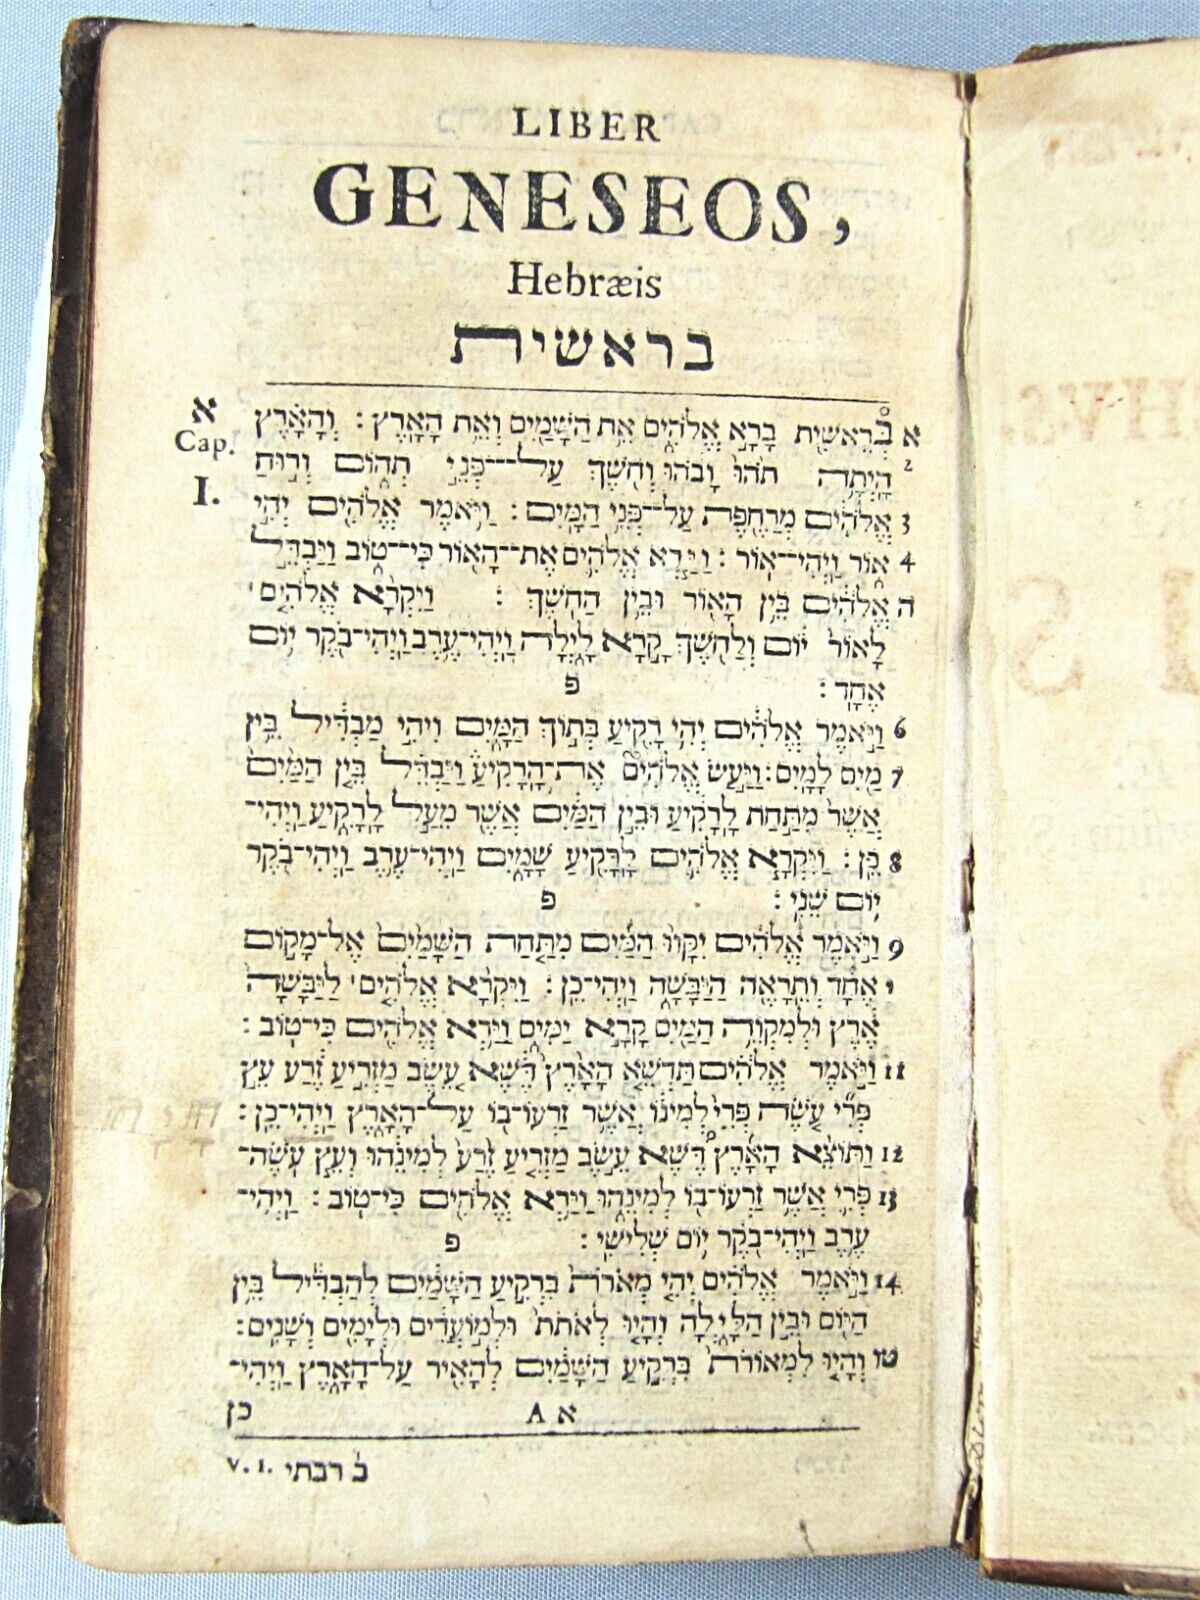 LIBER
GENESEOS,
Hebræis
בראשית
א
Cap.
I.
א בְּרֵאשִׁ֖ית בָּרָ֣א אֱלֹהִ֑ים אֵ֥ת הַשָּׁמַ֖יִם וְאֵ֥ת הָאָֽרֶץ : וְהָאָ֗רֶץ
2 הָיְתָ֥ה תֹ֙הוּ֙ וָבֹ֔הוּ וְחֹ֖שֶׁךְ עַל־פְּנֵ֣י תְה֑וֹם וְר֣וּחַ
3 אֱלֹהִ֔ים מְרַחֶ֖פֶת עַל־פְּנֵ֥י הַמָּֽיִם : וַיֹּ֥אמֶר אֱלֹהִ֖ים יְהִ֣י
4 א֑וֹר וַֽיְהִי־אֽוֹר : וַיַּ֧רְא אֱלֹהִ֛ים אֶת־הָא֖וֹר כִּי־ט֑וֹב וַיַּבְדֵּ֣ל
ה אֱלֹהִ֔ים בֵּ֥ין הָא֖וֹר וּבֵ֥ין הַחֹֽשֶׁךְ : וַיִּקְרָ֨א אֱלֹהִ֤ים׀
לָאוֹר֙ י֔וֹם וְלַחֹ֖שֶׁךְ קָ֣רָא לָ֑יְלָה וַֽיְהִי־עֶ֥רֶב וַֽיְהִי־בֹ֖קֶר י֥וֹם
אֶחָֽד : פ
6 וַיֹּ֣אמֶר אֱלֹהִ֔ים יְהִ֥י רָקִ֖יעַ בְּת֣וֹךְ הַמָּ֑יִם וִיהִ֣י מַבְדִּ֔יל בֵּ֥ין
7 מַ֖יִם לָמָֽיִם : וַיַּ֣עַשׂ אֱלֹהִים֮ אֶת־הָרָקִיעַ֒ וַיַּבְדֵּ֗ל בֵּ֤ין הַמַּ֙יִם֙
אֲשֶׁר֙ מִתַּ֣חַת לָרָקִ֔יעַ וּבֵ֣ין הַמַּ֔יִם אֲשֶׁ֖ר מֵעַ֣ל לָרָקִ֑יעַ וַֽיְהִי־
8 כֵֽן : וַיִּקְרָ֧א אֱלֹהִ֛ים לָֽרָקִ֖יעַ שָׁמָ֑יִם וַֽיְהִי־עֶ֥רֶב וַֽיְהִי־בֹ֖קֶר
י֥וֹם שֵׁנִֽי : פ
9 וַיֹּ֣אמֶר אֱלֹהִ֗ים יִקָּו֨וּ הַמַּ֜יִם מִתַּ֤חַת הַשָּׁמַ֙יִם֙ אֶל־מָק֣וֹם
י אֶחָ֔ד וְתֵרָאֶ֖ה הַיַּבָּשָׁ֑ה וַֽיְהִי־כֵֽן : וַיִּקְרָ֨א אֱלֹהִ֤ים׀ לַיַּבָּשָׁה֙
אֶ֔רֶץ וּלְמִקְוֵ֥ה הַמַּ֖יִם קָרָ֣א יַמִּ֑ים וַיַּ֥רְא אֱלֹהִ֖ים כִּי־טֽוֹב :
11 וַיֹּ֣אמֶר אֱלֹהִ֗ים תַּֽדְשֵׁ֤א הָאָ֙רֶץ֙ דֶּ֔שֶׁא עֵ֚שֶׂב מַזְרִ֣יעַ זֶ֔רַע עֵ֣ץ
פְּרִ֞י עֹ֤שֶׂה פְּרִי֙ לְמִינ֔וֹ אֲשֶׁ֥ר זַרְעוֹ־ב֖וֹ עַל־הָאָ֑רֶץ וַֽיְהִי־כֵֽן :
12 וַתּוֹצֵ֨א הָאָ֜רֶץ דֶּ֠שֶׁא עֵ֣שֶׂב מַזְרִ֤יעַ זֶ֙רַע֙ לְמִינֵ֔הוּ וְעֵ֧ץ עֹֽשֶׂה־
13 פְּרִ֛י אֲשֶׁ֥ר זַרְעוֹ־ב֖וֹ לְמִינֵ֑הוּ וַיַּ֥רְא אֱלֹהִ֖ים כִּי־טֽוֹב : וַֽיְהִי־
עֶ֥רֶב וַֽיְהִי־בֹ֖קֶר י֥וֹם שְׁלִישִֽׁי : פ
14 וַיֹּ֣אמֶר אֱלֹהִ֗ים יְהִ֤י מְאֹרֹת֙ בִּרְקִ֣יעַ הַשָּׁמַ֔יִם לְהַבְדִּ֕יל בֵּ֥ין
הַיּ֖וֹם וּבֵ֣ין הַלָּ֑יְלָה וְהָי֤וּ לְאֹתֹת֙ וּלְמ֣וֹעֲדִ֔ים וּלְיָמִ֖ים וְשָׁנִֽים :
טו וְהָי֤וּ לִמְאוֹרֹת֙ בִּרְקִ֣יעַ הַשָּׁמַ֔יִם לְהָאִ֖יר עַל־הָאָ֑רֶץ וַֽיְהִי־
א A כן
V. 1. ב רבתי